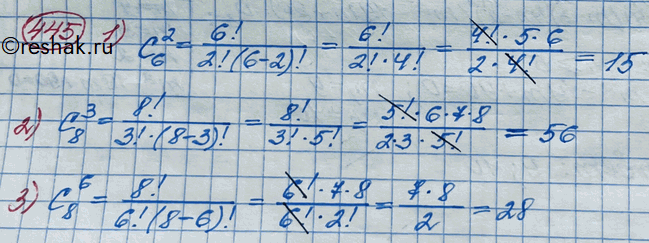 445 1) C₆² = 6!/(2!(6-2)!) = 6!/(2!·4!) = (4!·5·6)/(2·4!) = 15
©reshak.ru
2) C₈³ = 8!/(3!·(8-3)!) = 8!/(3!·5!) = (5!·6·7·8)/(2·3·5!) = 56
3) C₈⁶ = 8!/(6!(8-6)!) = (6!·7·8)/(6!·2!) = (7·8)/2 = 28